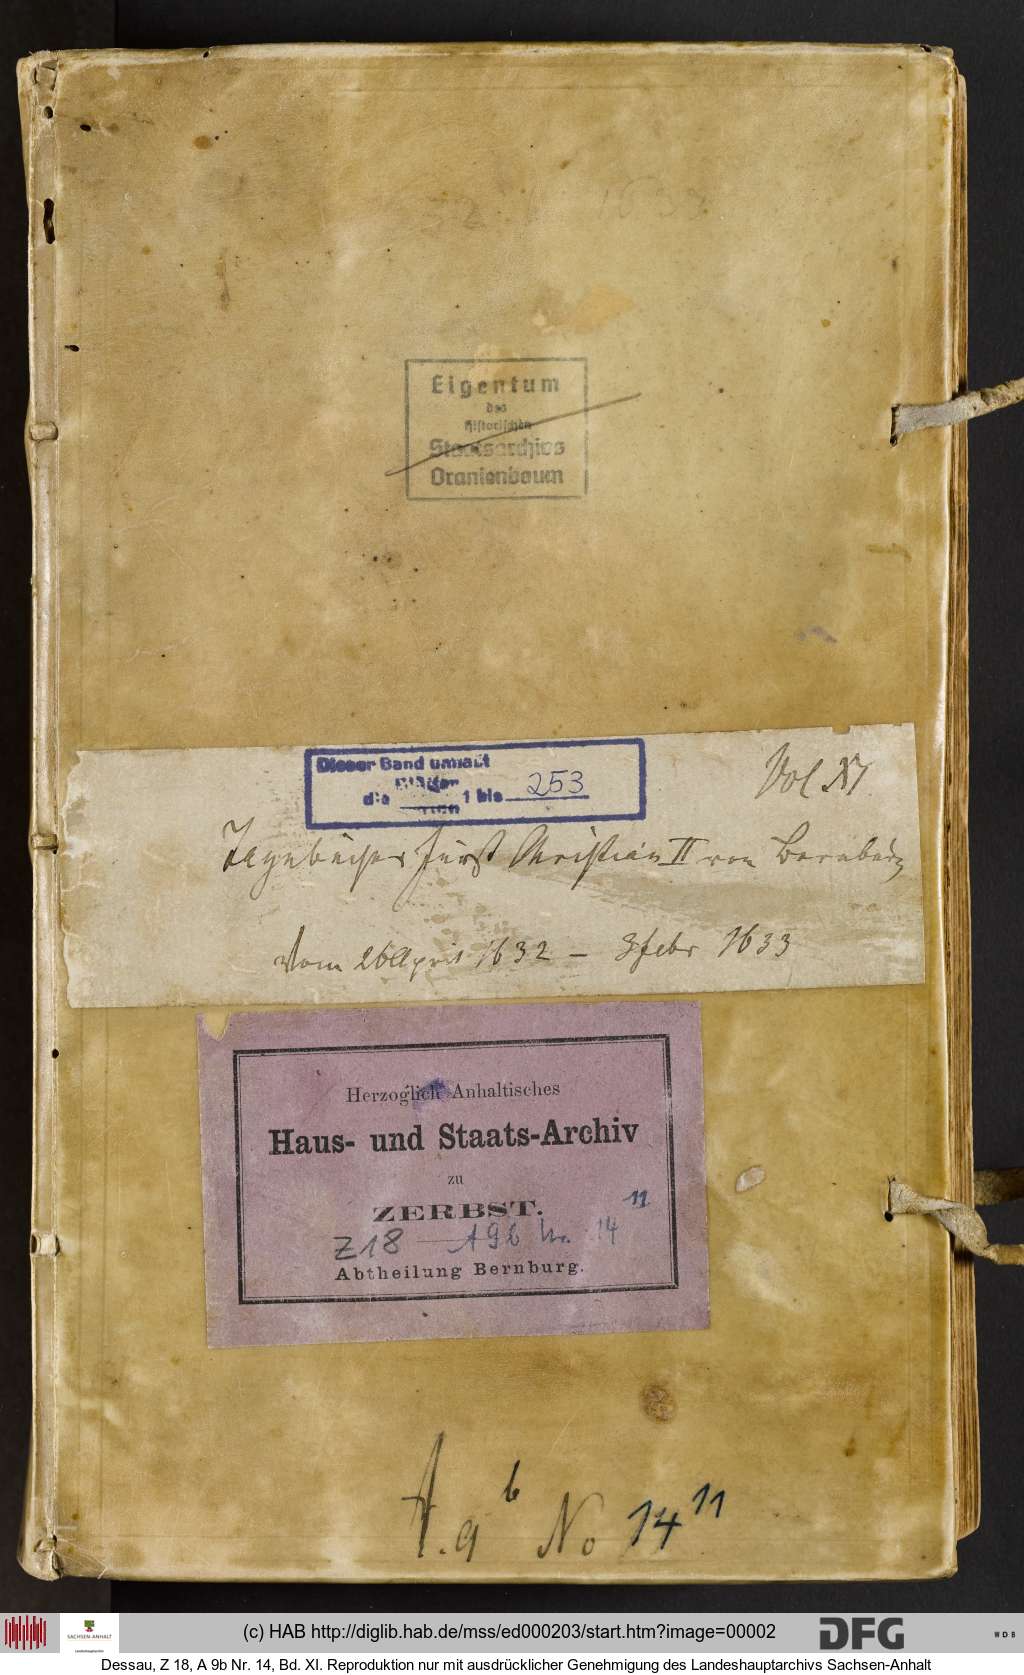 1632
Eigentum
des
Historischen
Staatsarchivs
Oranienbaum
Dieser Band umfaßt
Blätter
die 1 bis 253
Vol XI
Tagebücher Fürst Christian II von Bernburg
Vom 26 April 1632 – 3 Febr 1633
Herzoglich Anhaltisches
Haus- und Staats-Archiv
zu
ZERBST.
Z 18 — A 9b Nr. 14 11
Abtheilung Bernburg.
A. 9 b No 14 11
SACHSEN-ANHALT
Landeshauptarchiv
(c) HAB http://diglib.hab.de/mss/ed000203/start.htm?image=00002
DFG
WDB
Dessau, Z 18, A 9b Nr. 14, Bd. XI. Reproduktion nur mit ausdrücklicher Genehmigung des Landeshauptarchivs Sachsen-Anhalt